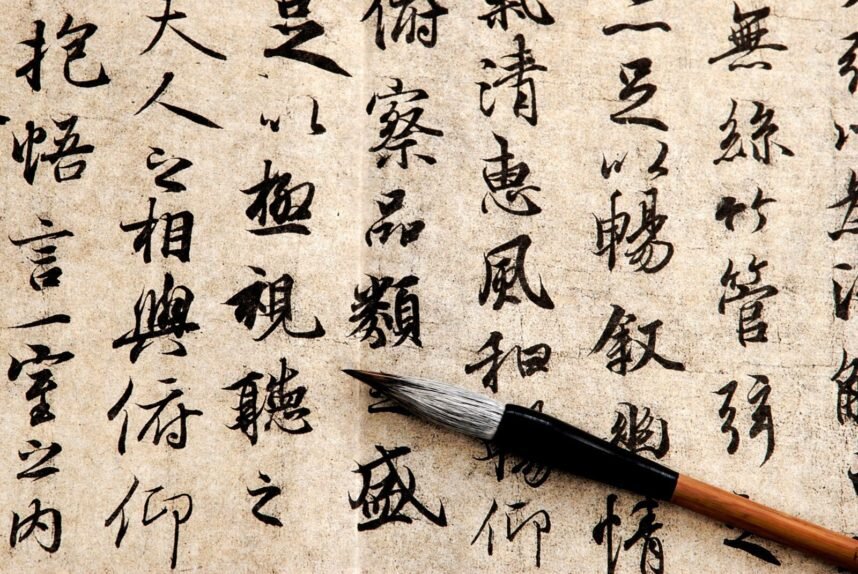 無絲竹管弦之
足以暢敘幽情
氣清惠風和暢仰
俯察品類之盛
足以極視聽之
夫人之相與俯仰
抱悟言一室之內